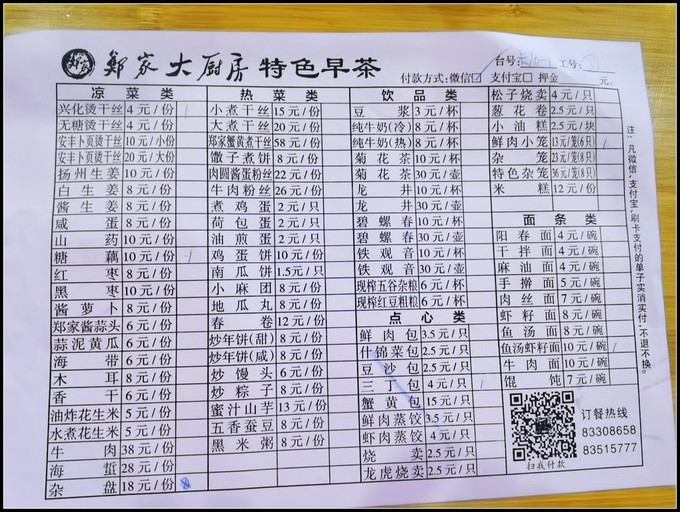 郑家
郑家大厨房 特色早茶
台号: 工号:
付款方式:微信☑ 支付宝☐ 押金 元.
凉菜类
兴化烫干丝 4元/份 1
无糖烫干丝 4元/份
安丰卜页烫干丝 10元/小份
安丰卜页烫干丝 20元/大份
扬州生姜 10元/份
白生姜 8元/份
酱生姜 8元/份
咸蛋 8元/份
山药 10元/份
糖藕 10元/份 1
红枣 8元/份
黑枣 10元/份
酱萝卜 8元/份
郑家酱蒜头 6元/份
蒜泥黄瓜 6元/份
海带 6元/份
木耳 8元/份
香干 6元/份
油炸花生米 5元/份
水煮花生米 5元/份
牛肉 38元/份
海蜇 28元/份
杂盘 18元/份
热菜类
小煮干丝 15元/份
大煮干丝 20元/份
郑家蟹黄煮干丝 58元/份
馓子煮饼 8元/份
肉圆酱蛋粉丝 22元/份
牛肉粉丝 26元/份
煮鸡蛋 2元/只
荷包蛋 2元/只
油煎蛋 2元/只
鸡蛋饼 10元/份
南瓜饼 1.5元/只
小麻团 8元/份
地瓜丸 8元/份
春卷 12元/份
炒年饼(甜) 8元/份
炒年饼(咸) 8元/份
炒馒头 6元/份
炒粽子 8元/份
蜜汁山芋 13元/份
五香蚕豆 8元/份
黑米粥 8元/份
饮品类
豆浆 3元/杯
纯牛奶(冷) 8元/杯
纯牛奶(热) 8元/杯
菊花茶 10元/杯
菊花茶 30元/壶
龙井 10元/杯
龙井 30元/壶
碧螺春 10元/杯
碧螺春 30元/壶
铁观音 10元/杯
铁观音 30元/壶
现榨五谷杂粮 6元/杯
现榨红豆粗粮 6元/杯
点心类
鲜肉包 3.5元/只
什锦菜包 2.5元/只
豆沙包 2.5元/只
三丁包 4元/只 1
蟹黄包 15元/只
鲜肉蒸饺 3.5元/只
虾肉蒸饺 4元/只
烧卖 2.5元/只
龙虎烧卖 2.5元/只
松子烧卖 4元/只
葱花卷 2.5元/只
小油糕 2.5元/块
鲜肉小笼 13元/笼(6只)
杂笼 23元/笼(8只)
特色杂笼 36元/笼(8只)
米糕 12元/份
面条类
阳春面 4元/碗
干拌面 4元/碗
麻油面 4元/碗
手擀面 5元/碗
肉丝面 7元/碗
虾籽面 8元/碗
鱼汤面 8元/碗
鱼汤虾籽面 10元/碗
牛肉面 10元/碗
馄饨 7元/碗
扫我付款
订餐热线
83308658
83515777
注:凡微信,支付宝,刷卡支付的单子实消实付,不退不换。